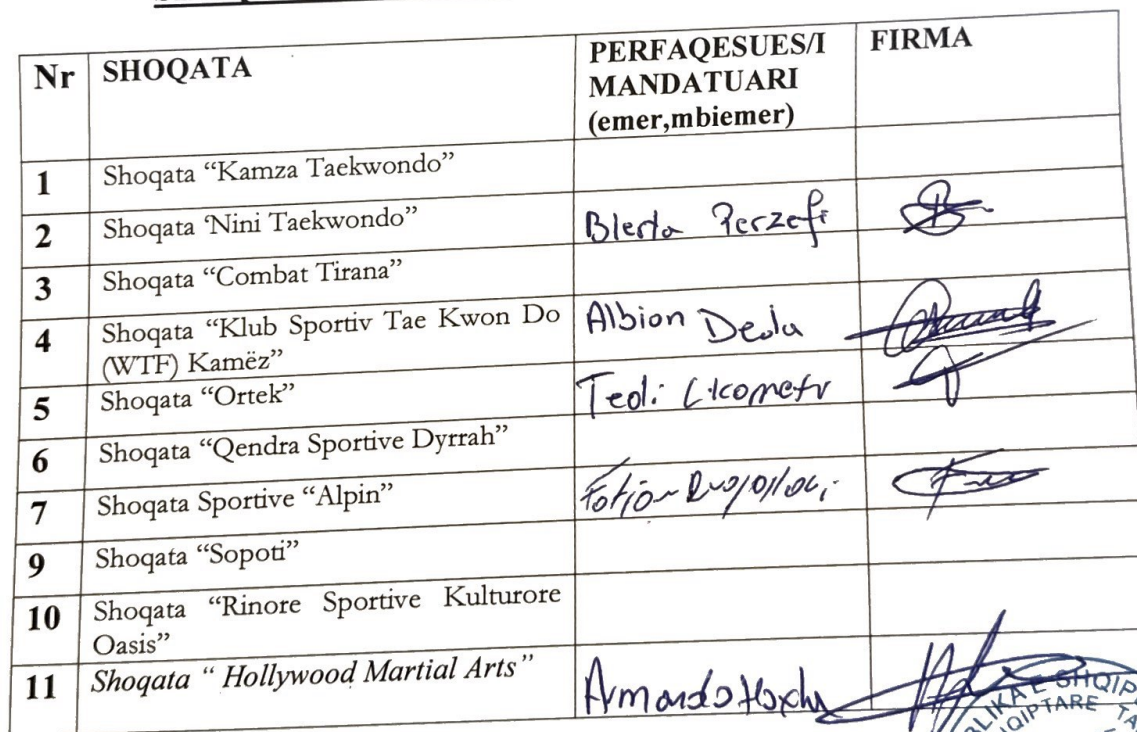 Nr SHOQATA PERFAQESUES/I MANDATUARI (emer,mbiemer) FIRMA
1 Shoqata “Kamza Taekwondo”
2 Shoqata ‘Nini Taekwondo” Blerta
3 Shoqata “Combat Tirana”
4 Shoqata “Klub Sportiv Tae Kwon Do
(WTF) Kamëz” Albion Deda
5 Shoqata “Ortek” Teoli
6 Shoqata “Qendra Sportive Dyrrah”
7 Shoqata Sportive “Alpin”
9 Shoqata “Sopoti”
10 Shoqata “Rinore Sportive Kulturore
Oasis”
11 Shoqata “ Hollywood Martial Arts” Armando Hoxha